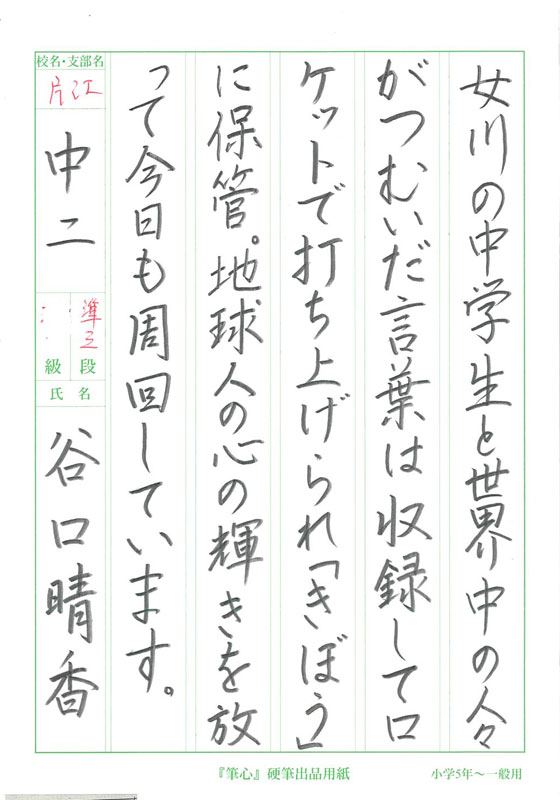 女川の中学生と世界中の人々
がつむいだ言葉は収録してロ
ケットで打ち上げられ「きぼう」
に保管。地球人の心の輝きを放
って今日も周回しています。
校名・支部名
片江
中二
準三
段
級
氏名
谷口晴香
『筆心』硬筆出品用紙
小学5年～一般用